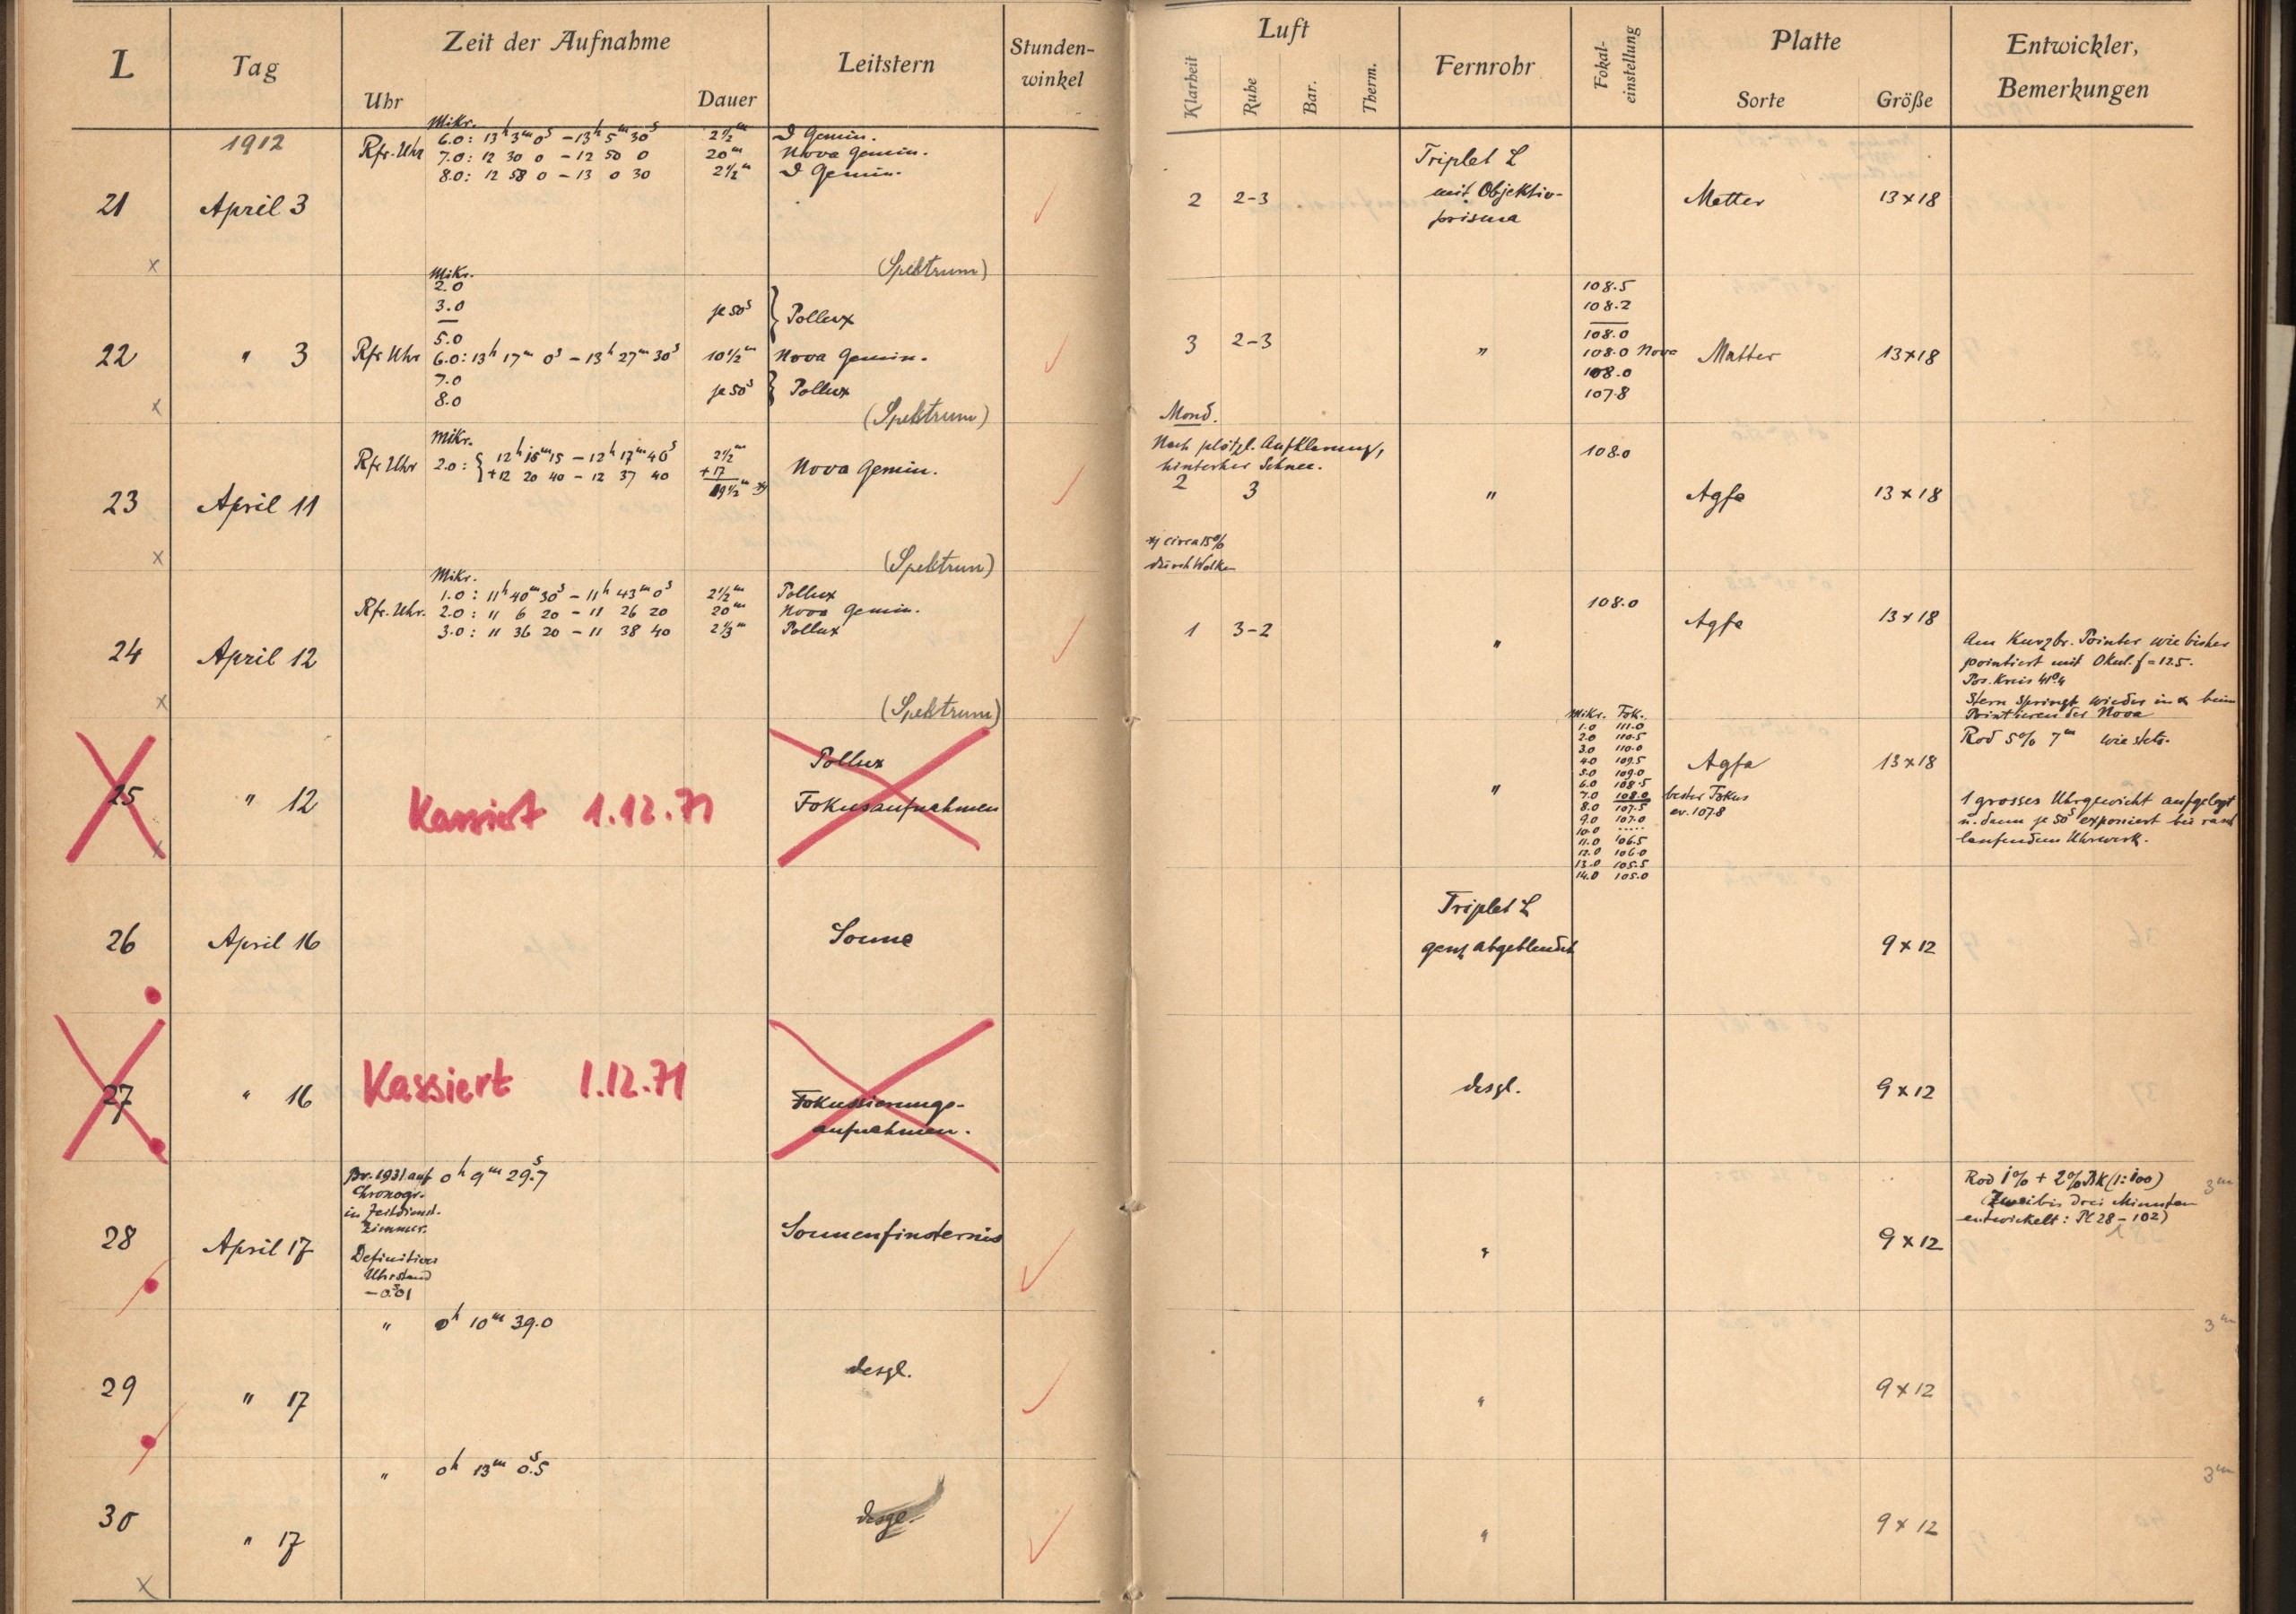 L Tag Zeit der Aufnahme Leitstern Stunden-winkel Luft Fernrohr Fokal-einstellung Platte Entwickler, Bemerkungen
Uhr Dauer Klarheit Ruhe Bar. Therm. Sorte Größe
1912
Mikr.
Rfr. Uhr 6.0: 13h 3m 0s – 13h 5m 30s 2½m ϑ Gemin.
7.0: 12 30 0 – 12 50 0 20m Nova Gemin.
8.0: 12 58 0 – 13 0 30 2½m ϑ Gemin.
21 April 3 2 2-3 Triplet L
mit Objektiv-
prisma
Matter 13×18
(Spektrum)
Mikr.
2.0 108.5
3.0 108.2
je 50s Pollux
5.0 108.0
22 " 3 Rfr Uhr 6.0: 13h 17m 0s – 13h 27m 30s 10½m Nova Gemin. 3 2-3 " 108.0 Nova Matter 13×18
7.0 108.0
je 50s Pollux
8.0 107.8
(Spektrum)
Mond.
Nach plötzl. Aufklarung,
hinterher Schnee.
Mikr.
Rfr Uhr 2.0: 12h 15m 15 – 12h 17m 46s 2½m
+12 20 40 – 12 37 40 +17
19½m *)
Nova Gemin. 108.0
23 April 11 2 3 " Agfa 13×18
*) circa 15%
durch Wolken
(Spektrum)
Mikr.
1.0: 11h 40m 30s – 11h 43m 0s 2½m Pollux
Rfr. Uhr. 2.0: 11 6 20 – 11 26 20 20m Nova Gemin. 108.0
3.0: 11 36 20 – 11 38 40 2⅓m Pollux
24 April 12 1 3-2 " Agfa 13×18
Am Kurzbr. Pointer wie bisher
pointiert mit Okul. f = 12.5.
Pos. Kreis 41°.4
Stern springt wieder in α beim
Pointieren der Nova
Rod 5% 7m wie stets.
(Spektrum)
25 " 12 Kassiert 1.12.71 Pollux
Fokusaufnahmen
" Agfa 13×18
Mikr. Fok.
1.0 111.0
2.0 110.5
3.0 110.0
4.0 109.5
5.0 109.0
6.0 108.5
7.0 108.0 bester Fokus
8.0 107.5 ev. 107.8
9.0 107.0
10.0 .....
11.0 106.5
12.0 106.0
13.0 105.5
14.0 105.0
1 grosses Uhrgewicht aufgelegt
u. dann je 50s exponiert bei rasch
laufendem Uhrwerk.
26 April 16 Sonne Triplet L
ganz abgeblendet
9×12
27 " 16 Kassiert 1.12.71 Fokussierungs-
aufnahmen.
desgl. 9×12
Br. 1931 auf 0h 9m 29s.7
Chronogr.
in Zeitdienst-
Zimmer.
Definitiver
Uhrstand
–0s.01
28 April 17 Sonnenfinsternis " 9×12
Rod 1% + 2% BK (1:100) 3m
(Zwei bis drei Minuten
entwickelt: Pl 28–102)
" 0h 10m 39.0 3m
29 " 17 desgl. " 9×12
" 0h 13m 0s.5 3m
30 " 17 desgl. " 9×12